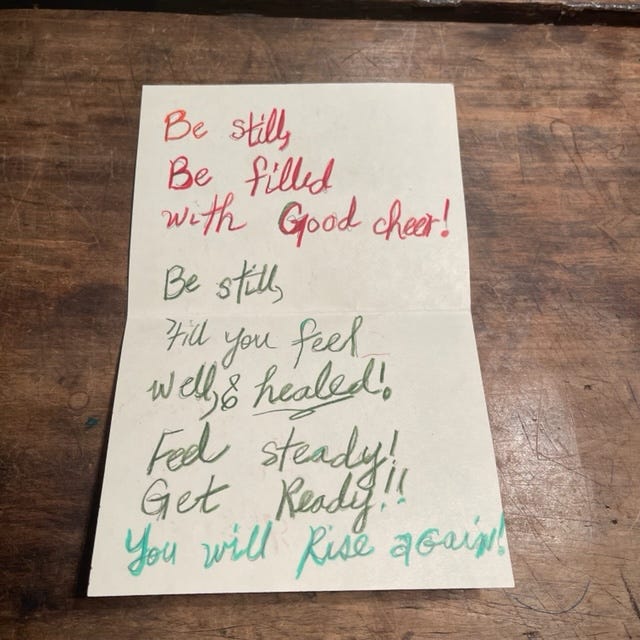 Be still,
Be filled
with Good cheer!
Be still,
till you feel
well, & healed!
Feel steady!
Get Ready!!
You will Rise again!